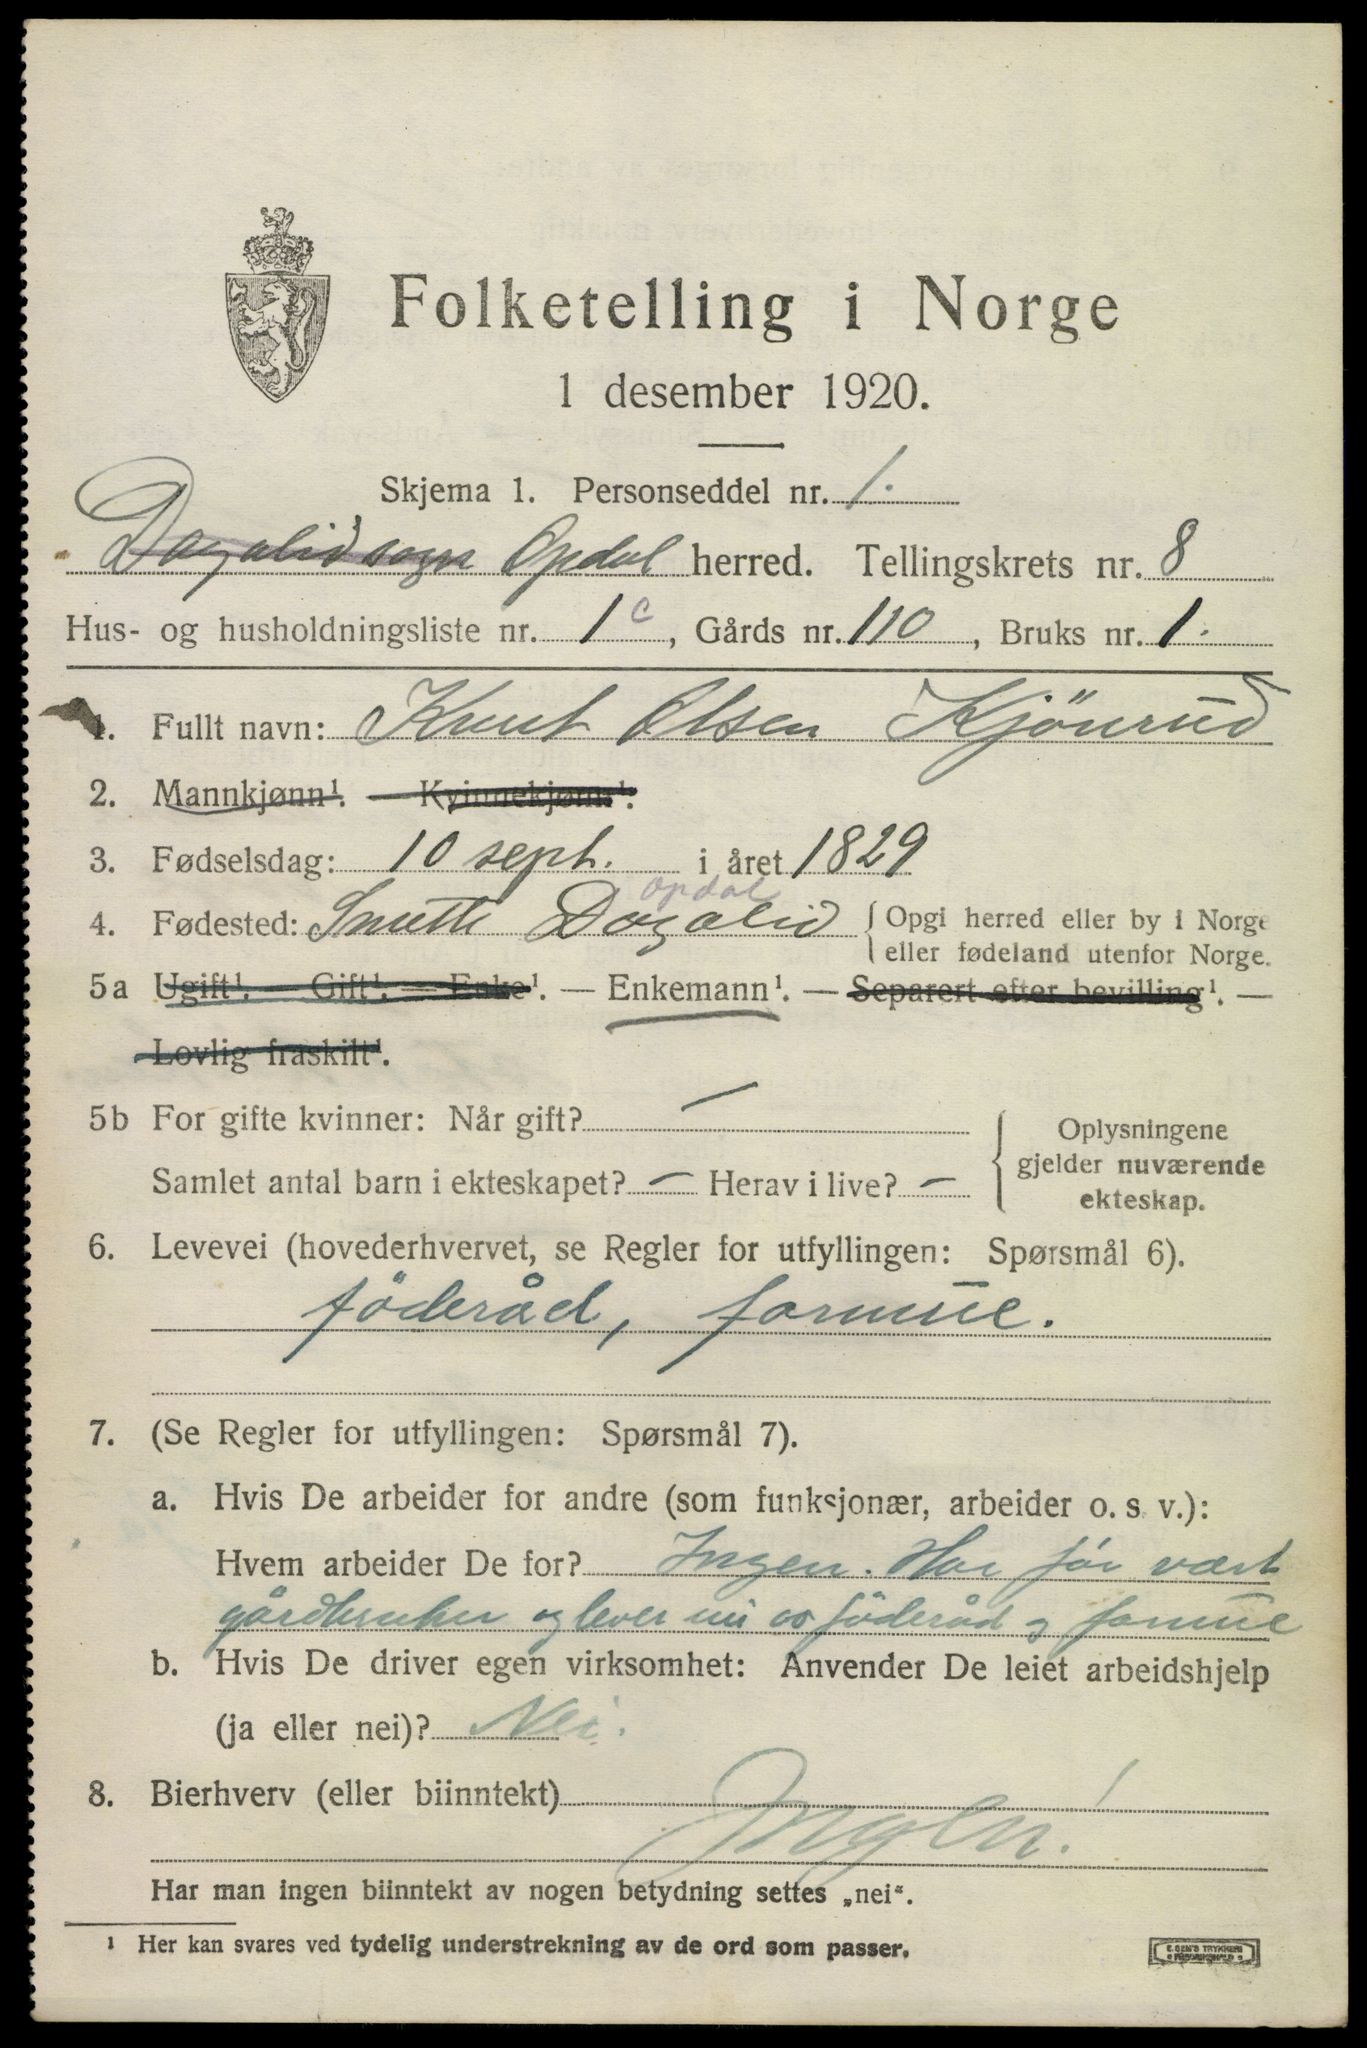 Folketelling i Norge
1 desember 1920.
Skjema 1. Personseddel nr. 1.
Dagalid sogn Opdal herred. Tellingskrets nr. 8
Hus- og husholdningsliste nr. 1 c, Gårds nr. 110, Bruks nr. 1.
1. Fullt navn: Knut Olsen Kjönrud
2. Mannkjønn¹. — Kvinnekjønn¹.
3. Fødselsdag: 10 sept. i året 1829
Opdal
4. Fødested: Dagalid { Opgi herred eller by i Norge
eller fødeland utenfor Norge.
5a Ugift¹. — Gift¹. — Enke¹. — Enkemann¹. — Separert efter bevilling¹. —
Lovlig fraskilt¹.
5b For gifte kvinner: Når gift? —
Samlet antal barn i ekteskapet? — Herav i live? —
{ Oplysningene
gjelder nuværende
ekteskap.
6. Levevei (hovederhvervet, se Regler for utfyllingen: Spørsmål 6).
föderåd, formue.
7. (Se Regler for utfyllingen: Spørsmål 7).
a. Hvis De arbeider for andre (som funksjonær, arbeider o. s. v.):
Hvem arbeider De for? Ingen. Har før vært
gårdbruker og lever nu av föderåd og formue
b. Hvis De driver egen virksomhet: Anvender De leiet arbeidshjelp
(ja eller nei)? Nei.
8. Bierhverv (eller biinntekt) Ingen!
Har man ingen biinntekt av nogen betydning settes „nei“.
¹ Her kan svares ved tydelig understrekning av de ord som passer.